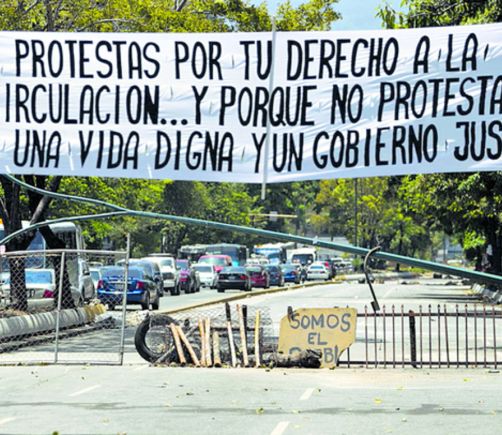 PROTESTAS POR TU DERECHO A LA
IRCULACION...Y PORQUE NO PROTESTA
UNA VIDA DIGNA Y UN GOBIERNO JUS
SOMOS
EL